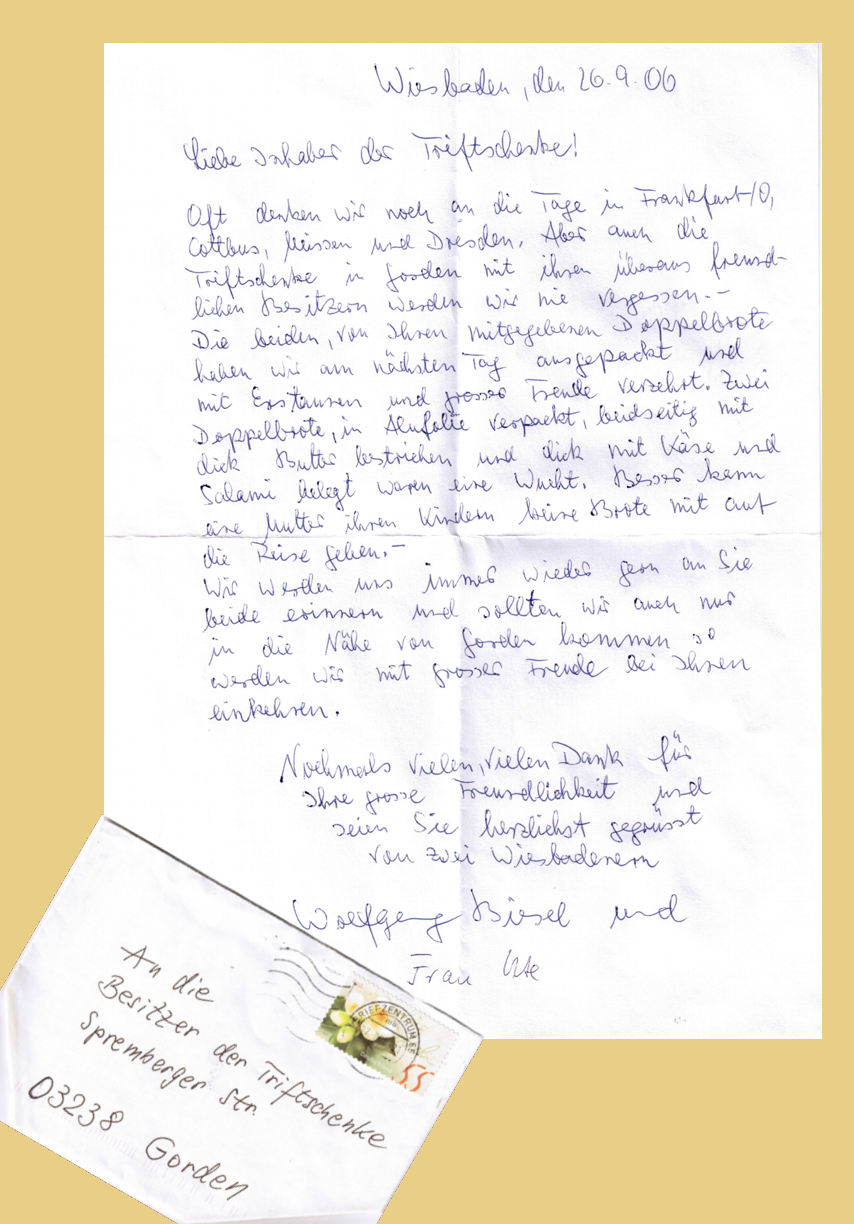 Wiesbaden, den 26.9.06
Liebe Inhaber der Triftschenke!
Oft denken wir noch an die Tage in Frankfurt/O,
Cottbus, Meissen und Dresden. Aber auch die
Triftschenke in Gorden mit ihren überaus freund-
lichen Besitzern werden wir nie vergessen.-
Die beiden, von Ihnen mitgegebenen Doppelbrote
haben wir am nächsten Tag ausgepackt und
mit Erstaunen und grosser Freude verzehrt. Zwei
Doppelbrote, in Alufolie verpackt, beidseitig mit
dick Butter bestrichen und dick mit Käse und
Salami belegt waren eine Wucht. Besser kann
eine Mutter ihren Kindern keine Brote mit auf
die Reise geben.-
Wir werden uns immer wieder gern an Sie
beide erinnern und sollten wir auch nur
in die Nähe von Gorden kommen so
werden wir mit grosser Freude bei Ihnen
einkehren.
Nochmals vielen, vielen Dank für
Ihre grosse Freundlichkeit und
seien Sie herzlichst gegrüsst
von zwei Wiesbadenern
Wolfgang und
Frau Ute
An die
Besitzer der Triftschenke
Spremberger Str.
03238 Gorden
BRIEFZENTRUM 65
55